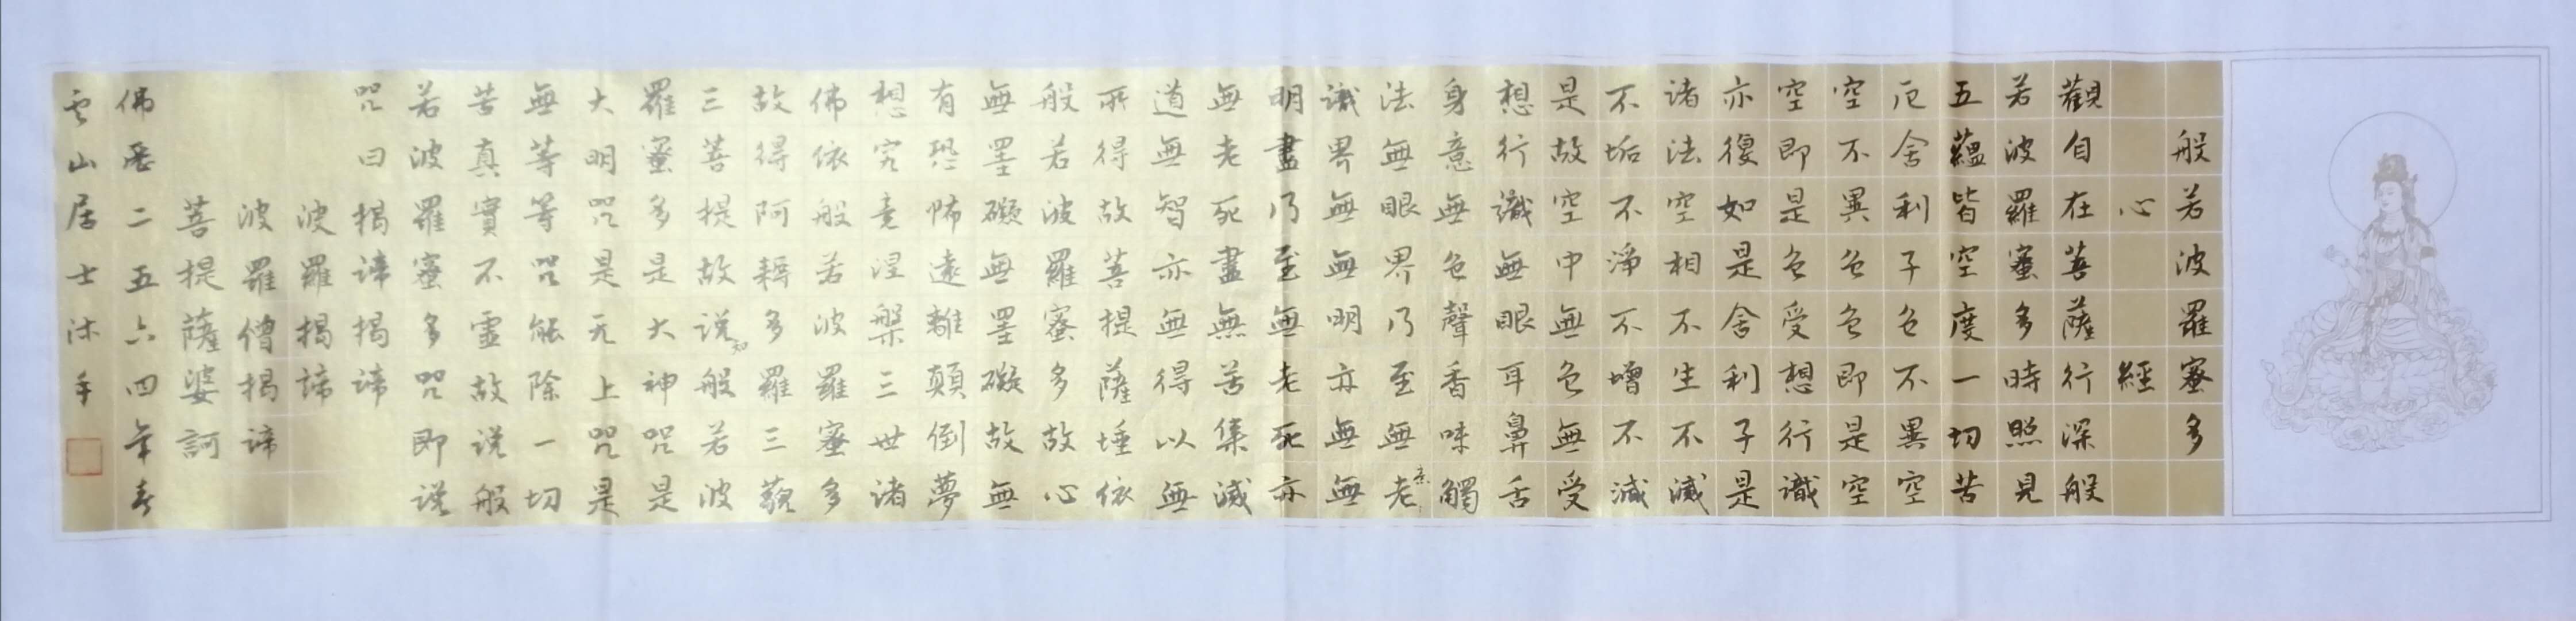 般若波羅蜜多
心經
觀自在菩薩行深般
若波羅蜜多時照見
五蘊皆空度一切苦
厄舍利子色不異空
空不異色色即是空
空即是色受想行識
亦復如是舍利子是
諸法空相不生不滅
不垢不淨不增不減
是故空中無色無受
想行識無眼耳鼻舌
身意無色聲香味觸
法無眼界乃至無老意
識界無無明亦無無
明盡乃至無老死亦
無老死盡無苦集滅
道無智亦無得以無
所得故菩提薩埵依
般若波羅蜜多故心
無罣礙無罣礙故無
有恐怖遠離顛倒夢
想究竟涅槃三世諸
佛依般若波羅蜜多
故得阿耨多羅三藐
三菩提故說知般若波
羅蜜多是大神咒是
大明咒是无上咒是
無等等咒能除一切
苦真實不虛故說般
若波羅蜜多咒即說
咒曰揭諦揭諦
波羅揭諦
波羅僧揭諦
菩提薩婆訶
佛曆二五六四年春
云山居士沐手